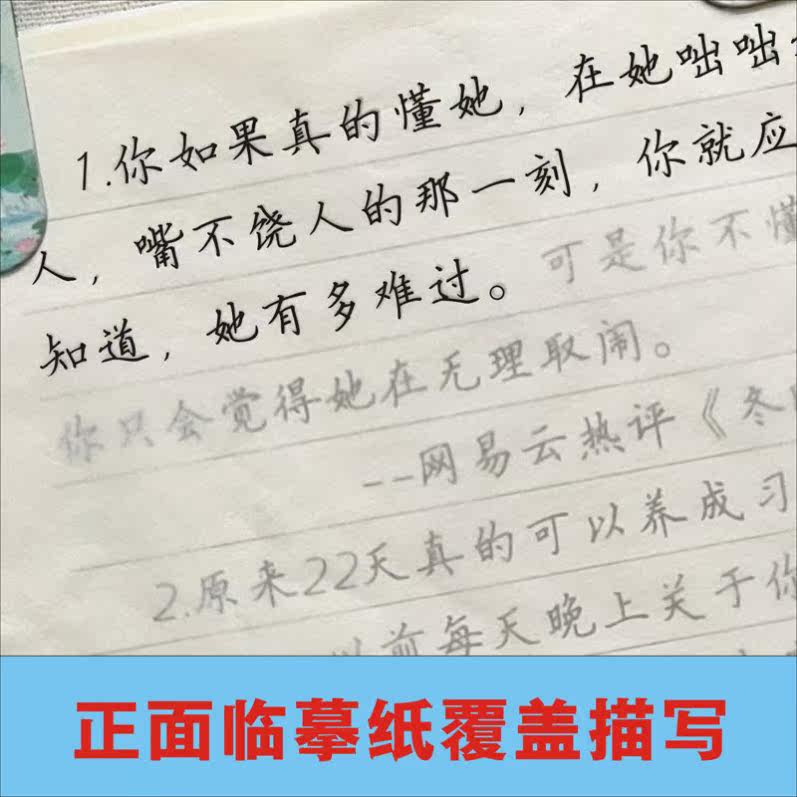 1.你如果真的懂她，在她咄咄
人，嘴不饶人的那一刻，你就应
知道，她有多难过。可是你不懂
你只会觉得她在无理取闹。
--网易云热评《冬
2.原来22天真的可以养成习
以前每天晚上关于你
正面临摹纸覆盖描写